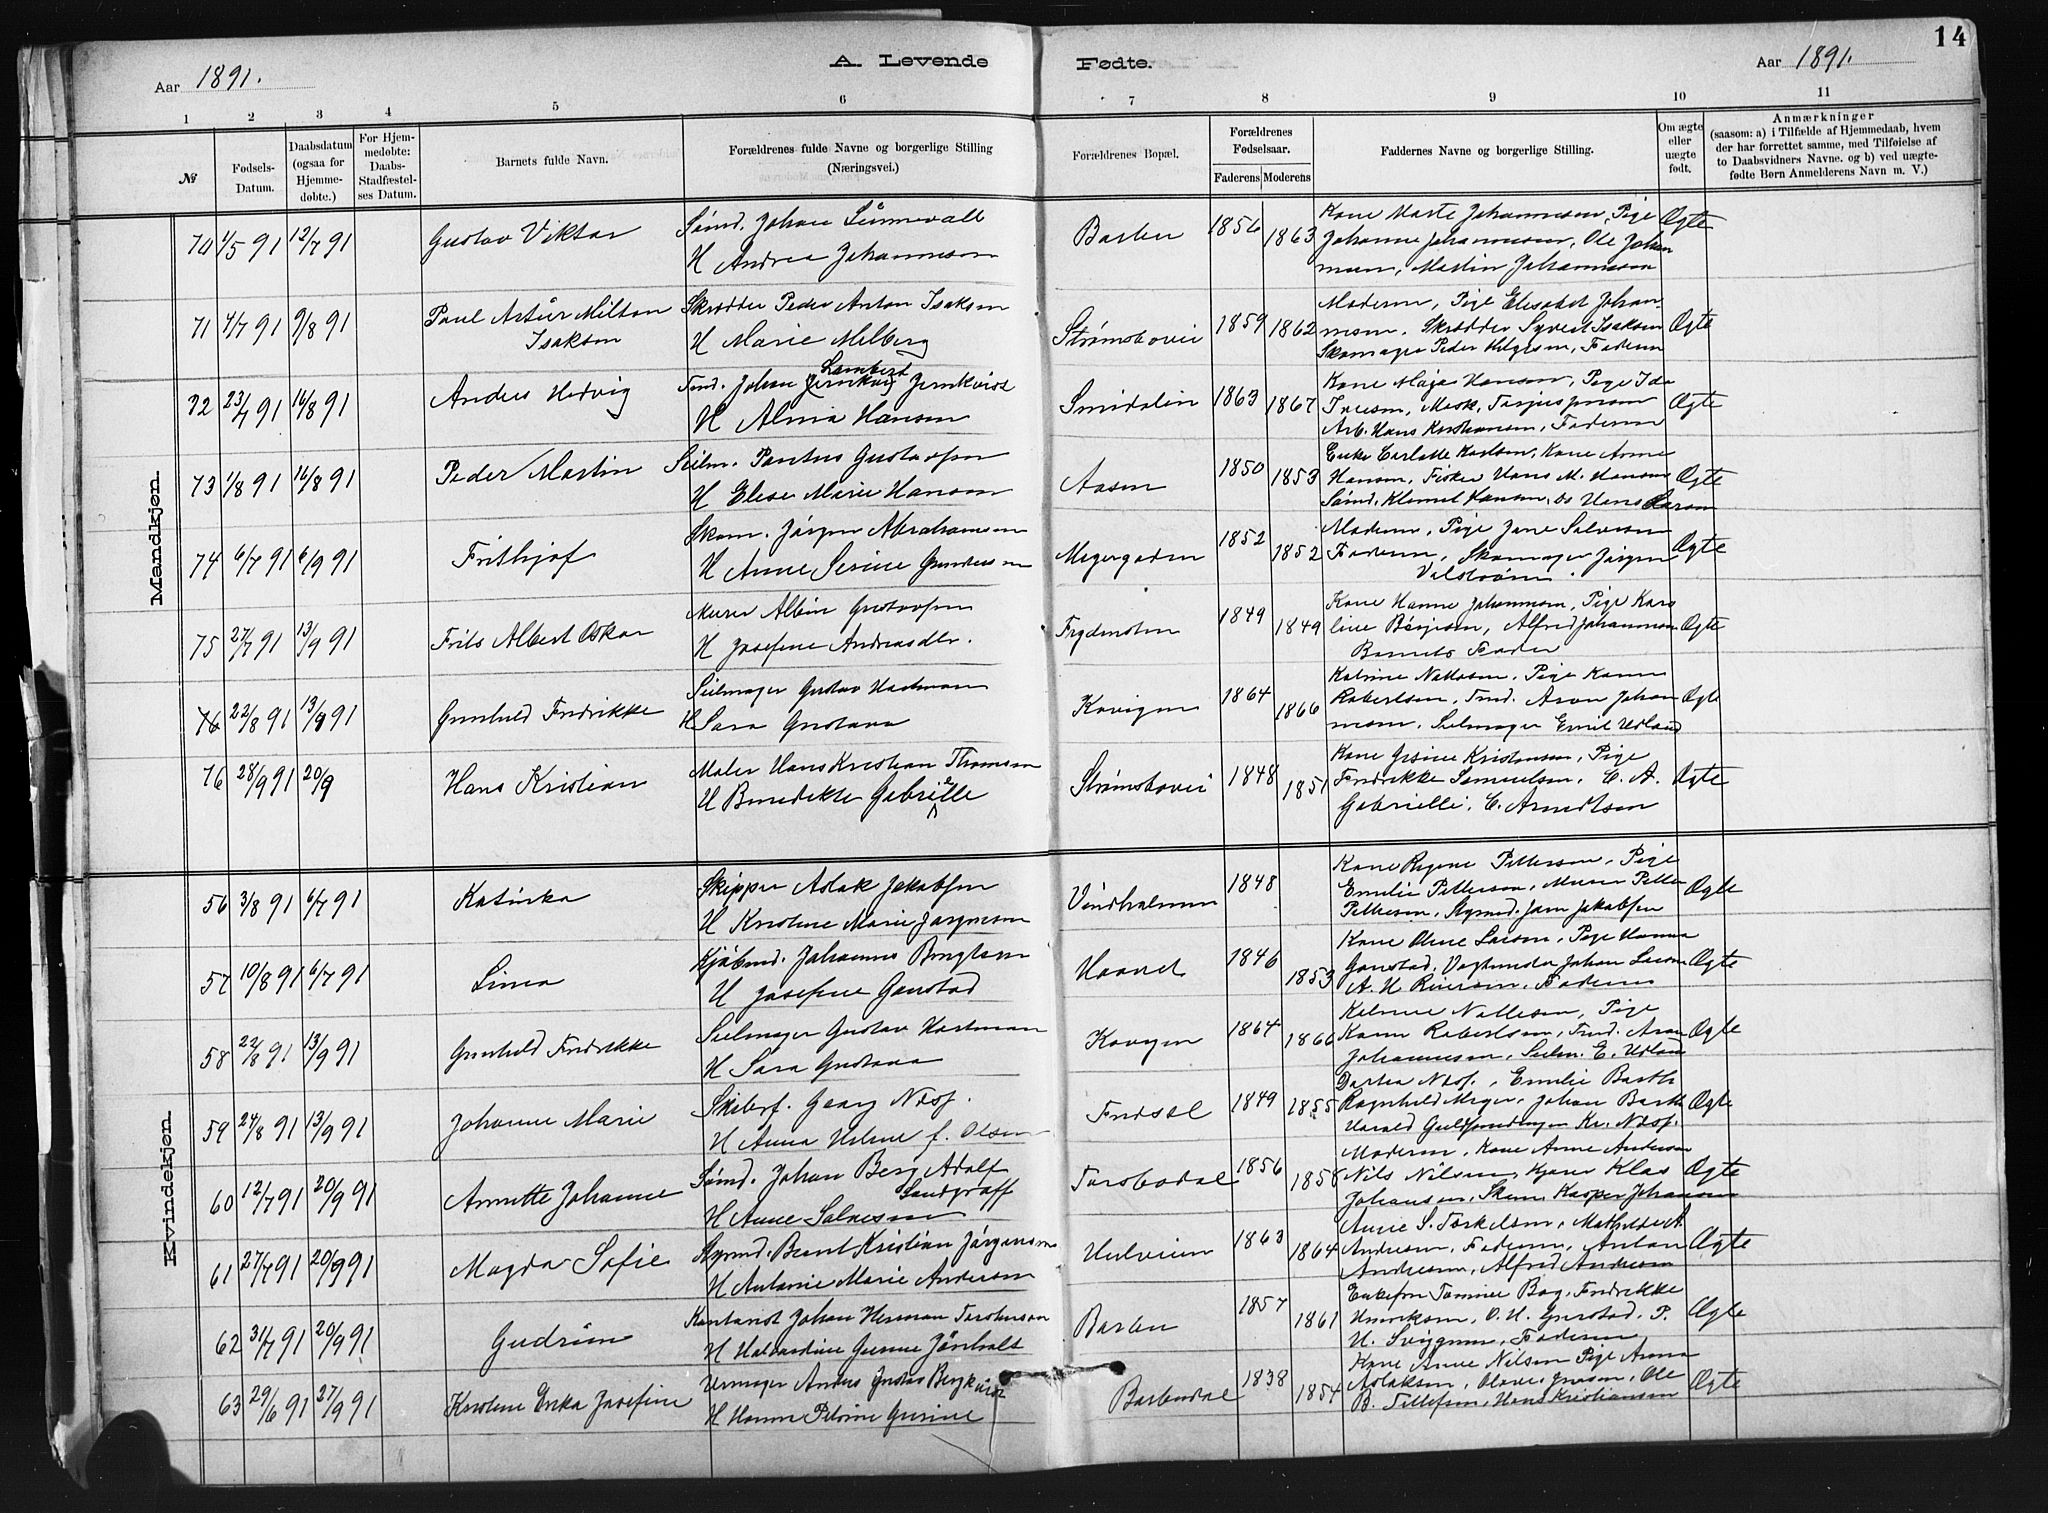 14
Aar 1891.
A. Levende Fødte.
Aar 1891.
1 2 3 4 5 6 7 8 9 10 11
№
Fødsels-Datum.
Daabsdatum (ogsaa for Hjemme-døbte.)
For Hjem-medøbte: Daabs-Stadfæstel-ses Datum.
Barnets fulde Navn.
Forældrenes fulde Navne og borgerlige Stilling
(Næringsvei.)
Forældrenes Bopæl.
Forældrenes Fødselsaar.
Faderens Moderens
Faddernes Navne og borgerlige Stilling.
Om ægte eller uægte født.
Anmærkninger
(saasom: a) i Tilfælde af Hjemmedaab, hvem
der har forrettet samme, med Tilføielse af
to Daabsvidners Navne. og b) ved uægte-
fødte Børn Anmelderens Navn m. V.)
Mandkjøn.
70 1/5 91 12/7 91 Gustav Viktor Sømd. Johan Sünnevall Barbu 1856 Kone Marte Johannesen, Pige Ægte
H Andrea Johannesen 1863 Johanne Johannesen, Ole Johan
nesen, Martin Johannesen
71 4/7 91 9/8 91 Paul Artür Milton Skrædder Peder Anton Isaksen Strømsbovei 1859 1862 Moderen, Pige Elisabet Johan- Ægte
Isaksen H Marie Milberg nesen, Skrædder Syvert Isaksen
Skomager Peder Helgesen, Faderen
72 23/7 91 16/8 91 Anders Hedvig Tmd. Johan Lambert Jernkvist Smidalen 1863 Kone Maja Hansen, Pige Ida Ægte
H Alma Hansen 1867 Iversen, Mask. Torjus
Arb. Hans Kristiansen, Faderen
73 1/8 91 16/8 91 Peder Martin Seilm. Pontus Gustavsen Aasen 1850 Enke Carlotte Karlsen, Kone Anne
H Elise Marie Hansen 1853 Hansen, Fisker Hans M. Hansen Ægte
Sømd. Klemet Hansen, do Hans Larsen
74 6/7 91 6/9 91 Frithjof Skom. Jørgen Abrahamsen Meyergaden 1852 Moderen, Pige Jane Salvesen Ægte
H Anne Serine Gundersen 1852 Faderen, Skomager Jørgen
Valstrøm.
75 27/7 91 13/9 91 Frits Albert Oskar Murer Albin Gustavsen Frydensten 1849 Kone Hanne Johannesen, Pige Karo
H Josefine Andreasdtr. 1849 line Børjesen, Alfred Johannesen Ægte
Barnets Fader
76 22/8 91 13/9 91 Gunhild Fredrikke Seilmager Gustav Hartman Kovigen 1864 Katrine Nattesen, Pige Karen
H Sara Gustava 1866 Robertsen, Tmd. Aron Johan Ægte
nesen, Seilmager Emil Udland
76 28/9 91 20/9 Hans Kristian Maler Hans Kristian Thomsen Strømsbovei 1848 Kone Gesine Kristensen, Pige
H Benedikte Gabrielle 1851 Fredrikke Samuelsen, C. A. Ægte
Gabrielli, C. Arndtsen
Kvindekjøn.
56 3/8 91 6/7 91 Katinka Skipper Aslak Jakobsen Vindholmen 1848 Kone Regine Pettersen, Pige
H Kristine Marie Jørgensen Emilie Pettersen, Murer Petter Ægte
Pettersen, Styrmd. Jam Jakobsen
57 10/8 91 6/7 91 Lina Kjøbmd. Johannes Bengtsen Haavet 1846 Kone Oline Larsen, Pige Hanna
H Josefine Ganstad 1853 Ganstad, Johan Larsen Ægte
A. H. Reiersen, Faderen
58 22/8 91 13/9 91 Gunhild Fredrikke Seilmager Gustav Hartman Kovigen 1864 Katrine Nattesen, Pige
H Sara Gustava 1866 Karen Robertsen, Tmd. Aron Ægte
Johannesen, Seilm. E. Udland
59 24/8 91 13/9 91 Johanne Marie Skibsf. Georg Næs. Fredsøl 1849 Dorthea Næs, Emilie Barth
H Anna Helene f. Olsen 1855 Ragnhild Meyer, Johan Barth Ægte
Harald Kr. Næs.
60 12/7 91 20/9 91 Annette Johanne Sømd. Johan Berg Adolf Torsbodal 1856 Moderen, Kone Anne Andersen
Sandgraff 1858 Nils Nilsen, Klas Ægte
H Anne Salvesen Johansen, Skom. Kasper Johansen
61 27/7 91 20/9 91 Magda Sofie Styrmd. Bernt Kristian Jørgensen 1863 Anne S. Torkelsen, Mathilde A.
H Antonie Marie Andersen 1864 Andresen, Faderen, Anton Ægte
Andresen, Alfred Andresen
62 31/7 91 20/9 91 Gudrün Kontorist Johan Herman Barbu 1857 Enkefru Tomine Bog, Fredrikke
H Halvardine Gurine Jörnholt 1861 Henriksen, O. H. P. Ægte
H. Faderen
63 29/6 91 27/9 91 Kristine Erika Josefine Urmager Anders Gustav Bergkvist Barbudal 1838 Kone Anne Nilsen Pige Anna
H Hanna Petrine Gurine 1854 Aslaksen, Ole Ægte
B. Tellefsen, Hans Kristiansen